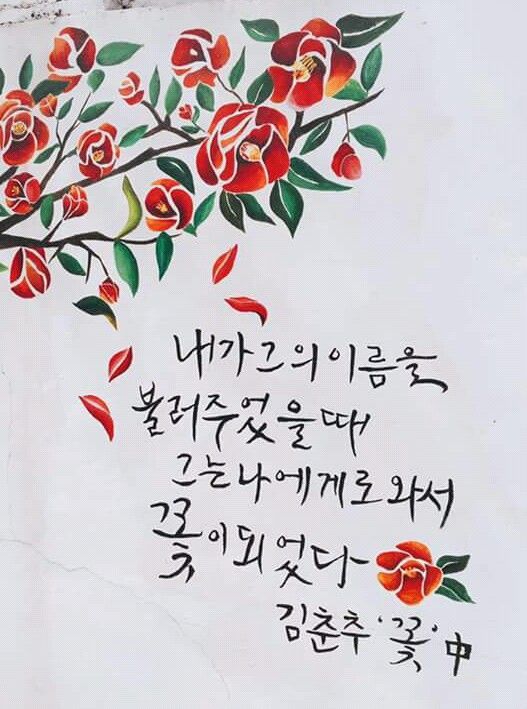 내가 그의 이름을
불러주었을 때
그는 나에게로 와서
꽃이 되었다
김춘추 '꽃' 中